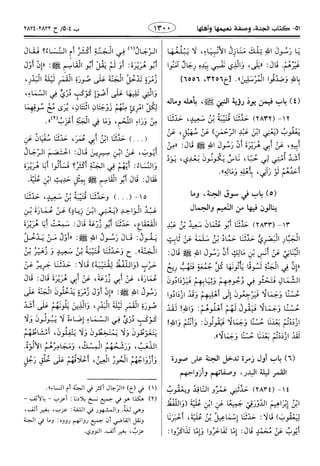 ٥١- كتاب الجنة، وصفة نعيمها وأهلها
١٣٠٠
ب ٥-٤/ ح ٢٨٣٢-٢٨٣٤
يَا رَسُولَ اللهِ! تِلْكَ مَنَازِلُ الأَنْبِيَاءِ، لَا يَبْلُغُهَا
غَيْرُهُمْ. قَالَ: «بَلَى، وَالَّذِي نَفْسِي بِيَدِهِ رِجَالٌ آمَنُوا
بِاللهِ وَصَدَّقُوا الْمُرْسَلِينَ».
(٤) باب فيمن يودّ رؤية النبي ﷺ، بأهله وماله
١٢-(٢٨٣٢) حَدَّثَنَا قُتَيْبَةُ بْنُ سَعِيدٍ، حَدَّثَنَا
يَعْقُوبُ (يَعْنِي ابْنَ عَبْدِ الرَّحْمَنِ) عَنْ سُهَيْلٍ، عَنْ
أَبِيهِ، عَنْ أَبِي هُرَيْرَةَ، أَنَّ رَسُولَ اللهِ ﷺ قَالَ: «مِنْ
أَشَدِّ أُمَّتِي لِي حُبًّا، نَاسٌ يَكُونُونَ بَعْدِي، يَوَدُّ
أَحَدُهُمْ لَوْ رَآنِي، بِأَهْلِهِ وَمَالِهِ».
(٥) باب في سوق الجنة، وما
ينالون فيها من النعيم والجمال
١٣-(٢٨٣٣) حَدَّثَنَا أَبُو عُثْمَانَ سَعِيدُ بْنُ عَبْدِ
الْجَبَّارِ الْبَصْرِيُّ، حَدَّثَنَا حَمَّادُ بْنُ سَلَمَةَ عَنْ ثَابِتٍ
الْبُنَانِيِّ، عَنْ أَنَسِ بْنِ مَالِكٍ أَنَّ رَسُولَ اللهِ ﷺ قَالَ:
«إِنَّ فِي الْجَنَّةِ لَسُوقًا يَأْتُونَهَا كُلَّ جُمُعَةٍ، فَتَهُبُّ رِيحُ
الشَّمَالِ فَتَحْثُو فِي وُجُوهِهِمْ وَثِيَابِهِمْ، فَيَزْدَادُونَ
حُسْنًا وَجَمَالًا، فَيَرْجِعُونَ إِلَى أَهْلِيهِمْ وَقَدِ ازْدَادُوا
حُسْنًا وَجَمَالًا، فَيَقُولُ لَهُمْ أَهْلُوهُمْ: وَاللهِ! لَقَدِ
ازْدَدْتُمْ بَعْدَنَا حُسْنًا وَجَمَالًا، فَيَقُولُونَ: وَأَنْتُمْ وَاللهِ!
لَقَدِ ازْدَدْتُمْ بَعْدَنَا حُسْنًا وَجَمَالًا».
(٦) باب أول زمرة تدخل الجنة على صورة
القمر ليلة البدر، وصفاتهم وأزواجهم
١٤-(٢٨٣٤) حَدَّثَنِي عَمْرٌو النَّاقِدُ وَيَعْقُوبُ
ابْنُ إِبْرَاهِيمَ الدَّوْرَقِيُّ جَمِيعًا عَنِ ابْنِ عُلَيَّةَ (وَاللَّفْظُ
لِيَعْقُوبَ) قَالَا: حَدَّثَنَا إِسْمَاعِيلُ ابْنُ عُلَيَّةَ، أَخْبَرَنَا
أَيُّوبُ عَنْ مُحَمَّدٍ قَالَ: إِمَّا تَفَاخَرُوا وَإِمَّا تَذَاكَرُوا:
الرِّجَالُ فِي الْجَنَّةِ أَكْثَرُ أَمِ النِّسَاءُ؟ فَقَالَ
أَبُو هُرَيْرَةَ: أَوَ لَمْ يَقُلْ أَبُو الْقَاسِمِ ﷺ: «إِنَّ أَوَّلَ
زُمْرَةٍ تَدْخُلُ الْجَنَّةَ عَلَى صُورَةِ الْقَمَرِ لَيْلَةَ الْبَدْرِ،
وَالَّتِي تَلِيهَا عَلَى أَضْوَإِ كَوْكَبٍ دُرِّيٍّ فِي السَّمَاءِ،
لِكُلِّ امْرِئٍ مِنْهُمْ زَوْجَتَانِ اثْنَتَانِ، يُرَى مُخُّ سُوقِهِمَا
مِنْ وَرَاءِ اللَّحْمِ، وَمَا فِي الْجَنَّةِ أَعْزَبُ».
(...) حَدَّثَنَا ابْنُ أَبِي عُمَرَ، حَدَّثَنَا سُفْيَانُ عَنْ
أَيُّوبَ، عَنِ ابْنِ سِيرِينَ قَالَ: اخْتَصَمَ الرِّجَالُ
وَالنِّسَاءُ: أَيُّهُمْ فِي الْجَنَّةِ أَكْثَرُ؟ فَسَأَلُوا أَبَا هُرَيْرَةَ
فَقَالَ: قَالَ أَبُو الْقَاسِمِ ﷺ بِمِثْلِ حَدِيثِ ابْنِ عُلَيَّةَ.
١٥-(...) وَحَدَّثَنَا قُتَيْبَةُ بْنُ سَعِيدٍ، حَدَّثَنَا
عَبْدُ الْوَاحِدِ (يَعْنِي ابْنَ زِيَادٍ) عَنْ عُمَارَةَ بْنِ
الْقَعْقَاعِ، حَدَّثَنَا أَبُو زُرْعَةَ قَالَ: سَمِعْتُ أَبَا هُرَيْرَةَ
يَقُولُ: قَالَ رَسُولُ اللهِ ﷺ: «أَوَّلُ مَنْ يَدْخُلُ
الْجَنَّةَ»، ح وَحَدَّثَنَا قُتَيْبَةُ بْنُ سَعِيدٍ وَزُهَيْرُ بْنُ
حَرْبٍ (وَاللَّفْظُ لِقُتَيْبَةَ) قَالَا: حَدَّثَنَا جَرِيرٌ عَنْ
عُمَارَةَ، عَنْ أَبِي زُرْعَةَ، عَنْ أَبِي هُرَيْرَةَ قَالَ: قَالَ
رَسُولُ اللهِ ﷺ: «إِنَّ أَوَّلَ زُمْرَةٍ يَدْخُلُونَ الْجَنَّةَ عَلَى
صُورَةِ الْقَمَرِ لَيْلَةَ الْبَدْرِ، وَالَّذِينَ يَلُونَهُمْ عَلَى أَشَدِّ
كَوْكَبٍ دُرِّيٍّ فِي السَّمَاءِ إِضَاءَةً لَا يَبُولُونَ وَلَا
يَتَغَوَّطُونَ وَلَا يَمْتَخِطُونَ وَلَا يَتْفِلُونَ، أَمْشَاطُهُمُ
الذَّهَبُ، وَرَشْحُهُمُ الْمِسْكُ، وَمَجَامِرُهُمُ الأَلُوَّةُ،
وَأَزْوَاجُهُمُ الْحُورُ الْعِينُ، أَخْلَاقُهُمْ عَلَى خُلُقِ رَجُلٍ
(١) في (خ) «الرجال أكثر في الجنة أم النساء».
(٢) هكذا هو في جميع نسخ بلادنا: أعزب - بالألف -
وهي لغة. والمشهور في اللغة: عزب، بغير ألف،
ونقل القاضي أن جميع رواتهم رووه: وما في الجنة
عزب، بغير ألف. النووي.